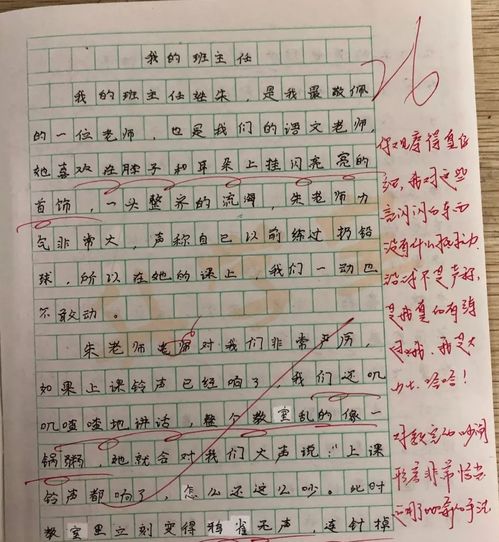 我的班主任
26
我的班主任姓朱，是我最敬佩
的一位老师，也是我们的语文老师，
她喜欢在脖子和耳朵上挂闪亮亮的
首饰，一头整齐的流海，朱老师力
气非常大，声称自己以前练过扔铅
球，所以在她的课上，我们一动也
不敢动。
朱老师老师对我们非常严厉，
如果上课铃声已经响了，我们还叽
叽喳喳地讲话，整个教室乱的像一
锅粥，她就会对我们大声说：“上课
铃声都响了，怎么还这么吵。此时
教室里立刻变得鸦雀无声，连针掉
你观察得
我对这些
闪闪的东西
没有什么抵抗力
是我真的有
力士，哈哈！
对教室的吵闹
形容非常恰当
运用了